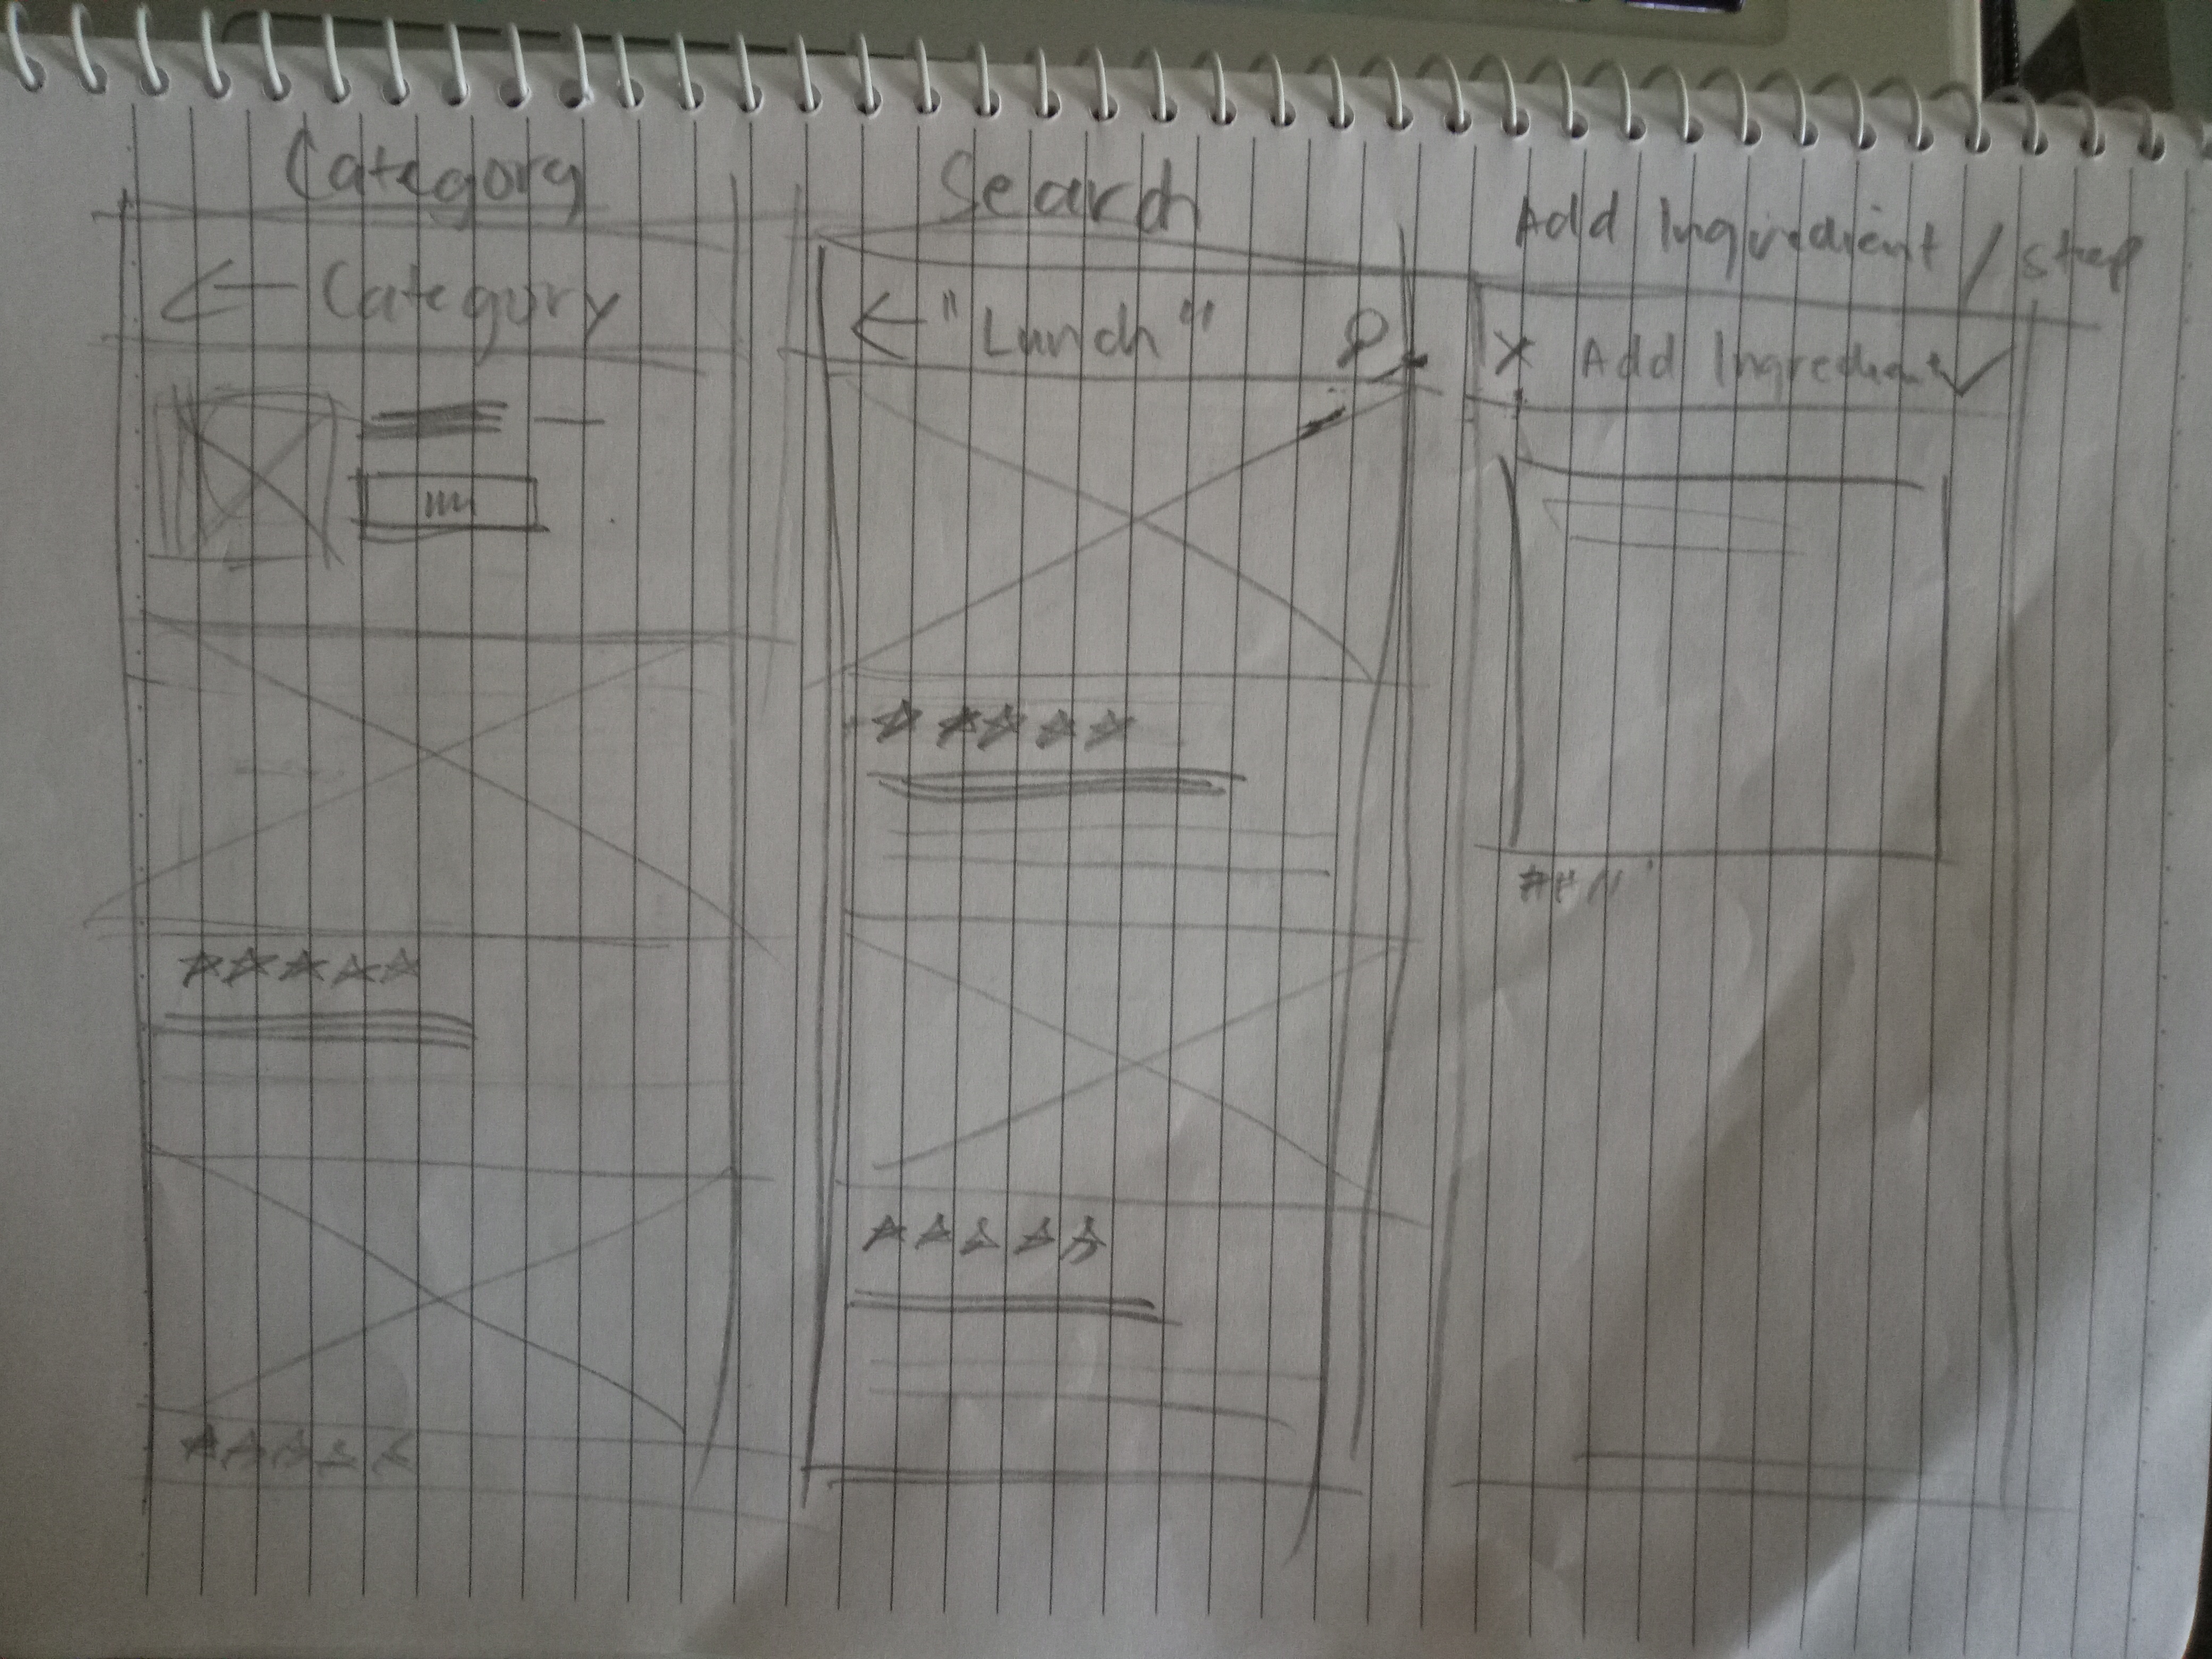 Category
← Category
Search
← "Lunch"
Add Ingiredient / step
X Add Ingredient ✓